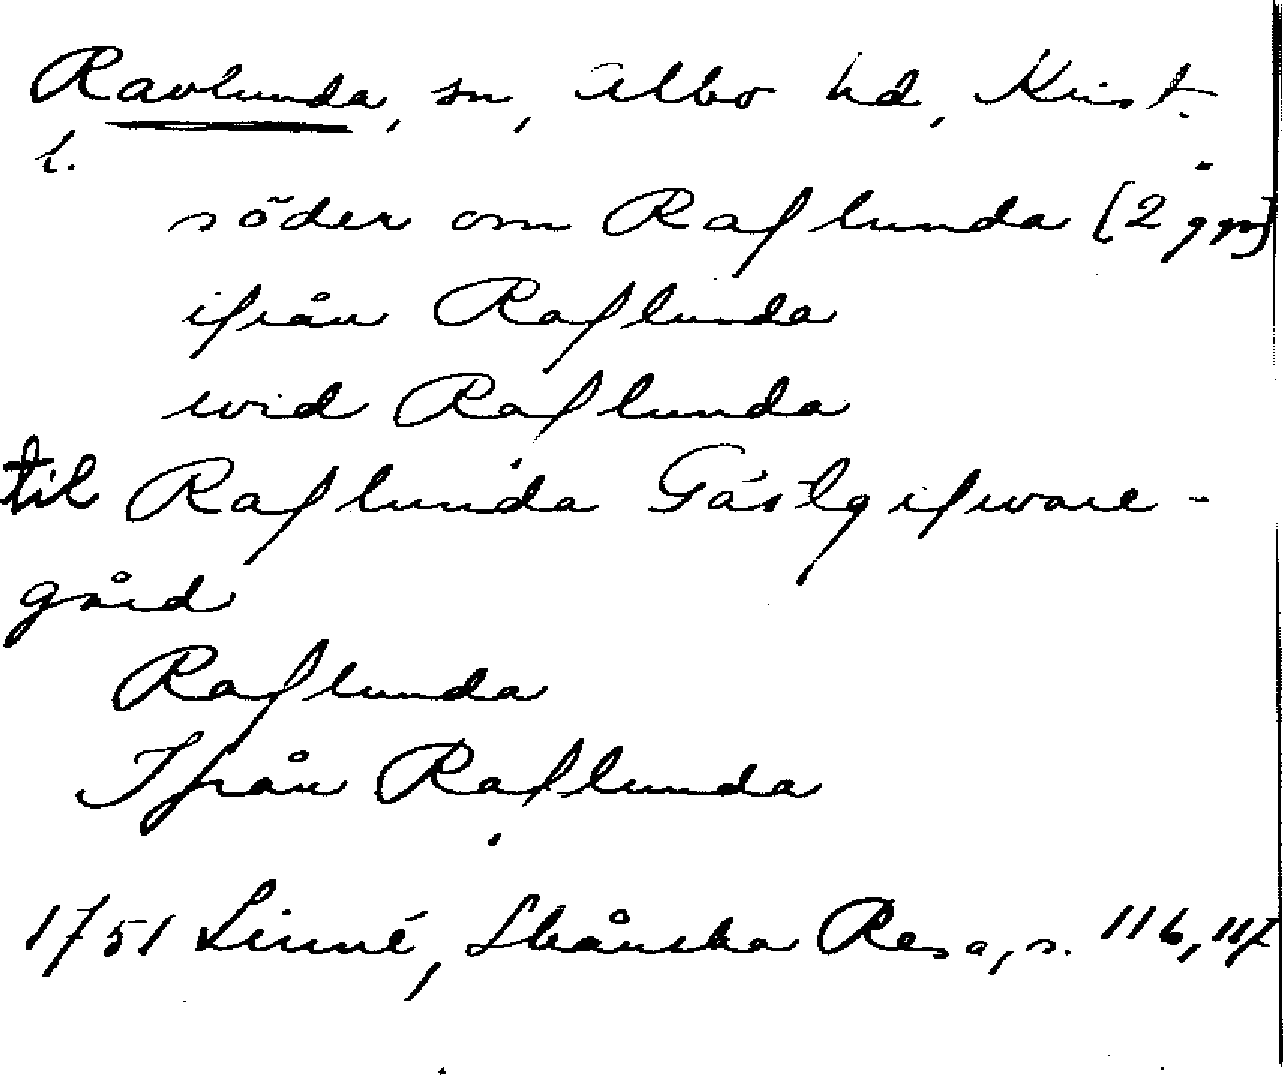 Ravlunda, sn, Albo hd, Krist.
l.
söder om Raflunda (2 ggr)
ifrån Raflunda
wid Raflunda
til Raflunda Gästgifware-
gård
Raflunda
Ifrån Raflunda
1751 Linné, Skånska Resa, s. 116, 117